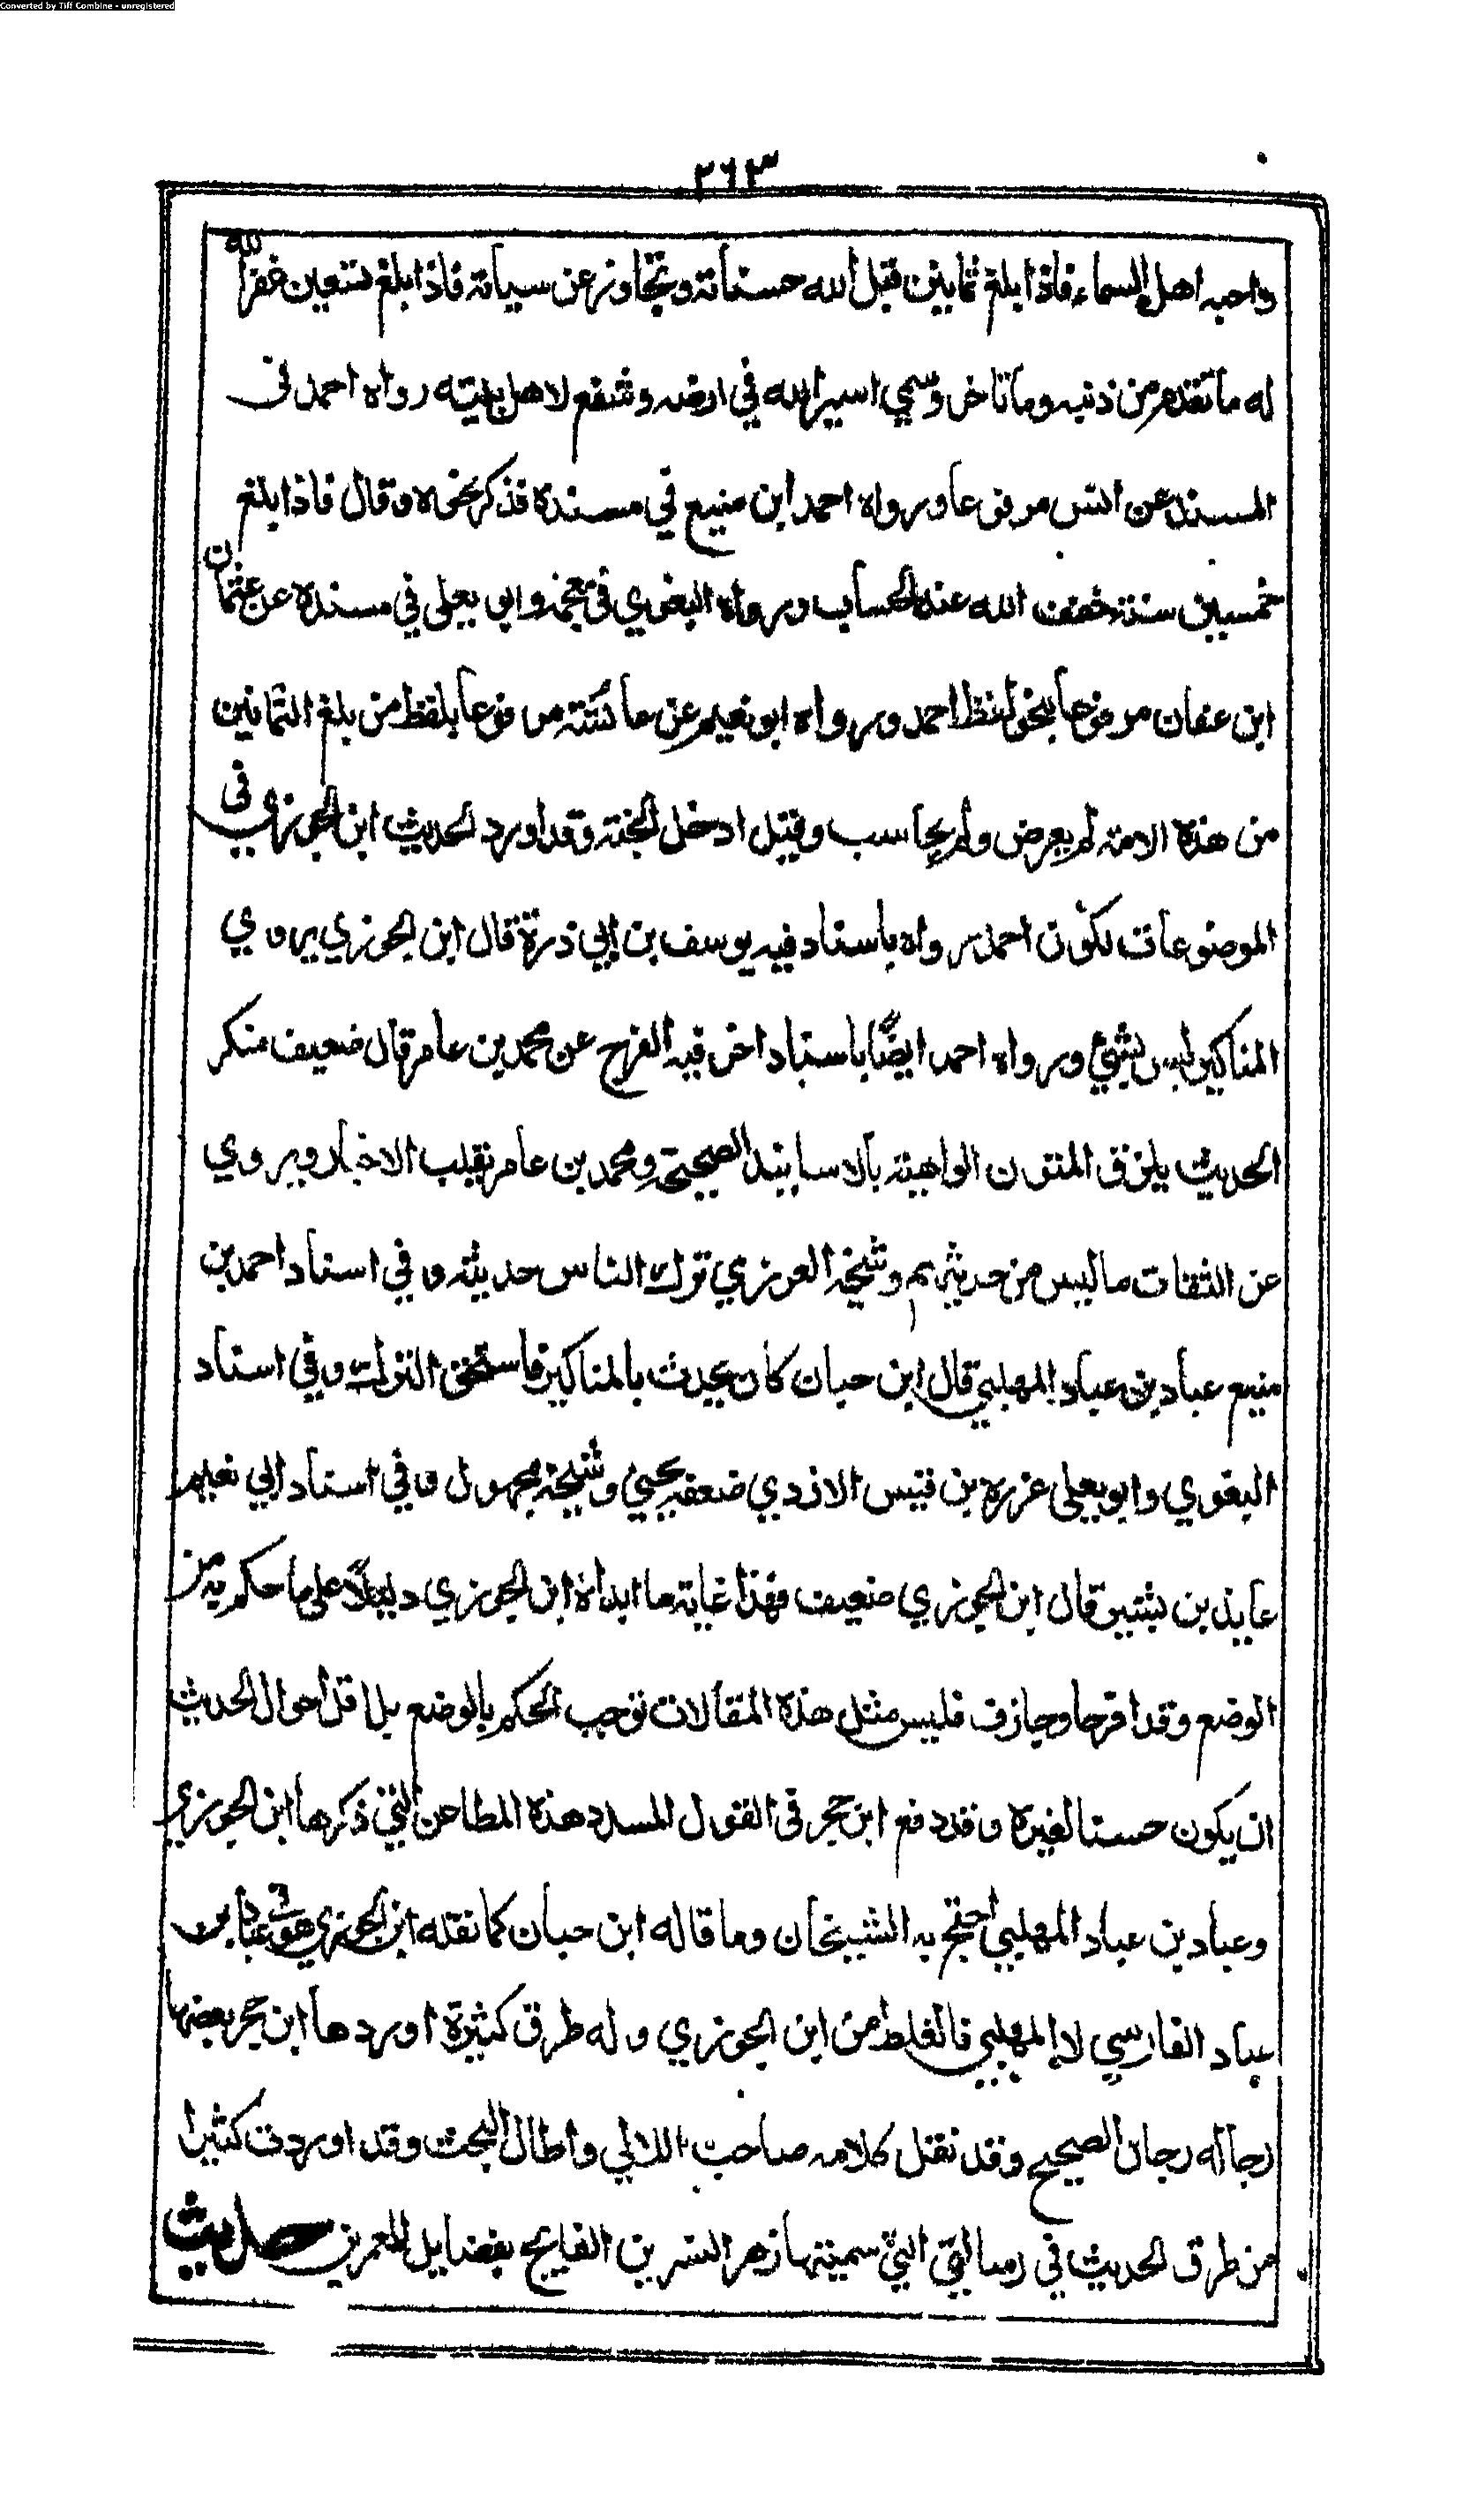 Converted by Tiff Combine - unregistered
٢٦٣
واحبه اهل السماء فاذا بلغ ثمانين قبل الله حسناته وتجاوز عن سياته فاذا بلغ تسعين غفر الله
له ما تقدم من ذنبه وما تاخر وسمي اسير الله في ارضه وشفع لاهل بيته رواه احمد في
المسند عن انس مرفوعا ورواه احمد ابن منيع في مسنده فذكر نحوه وقال فاذا بلغ
خمسين سنة خفف الله عنه الحساب ورواه البغوي في معجمه وابو يعلى في مسنده عن عثمان
ابن عفان مرفوعا بنحو لفظ احمد ورواه ابو نعيم عن عائشة مرفوعا بلفظ من بلغ الثمانين
من هذه الامة لم يعرض ولم يحاسب وقيل ادخل الجنة وقد اورد الحديث ابن الجوزي في
الموضوعات لكون احمد رواه باسناد فيه يوسف بن ابي ذرة قال ابن الجوزي يروي
المناكير ليس بشيئ ورواه احمد ايضًا باسناد اخر فيه الفرج عن محمد بن عامر قال ضعيف منكر
الحديث يلزق المتون الواهية بالاسانيد الصحيحة ومحمد بن عامر يقلب الاخبار ويروي
عن الثقات ما ليس من حديثهم وشيخه العرزمي ترك الناس حديثه وفي اسناد احمد بن
منيع عباد بن عباد المهلبي قال ابن حبان كان يحدث بالمناكير فاستحق الترك وفي اسناد
البغوي وابو يعلى عزرة بن قيس الازدي ضعفه يحيئ وشيخه مجهول وفي اسناد ابي نعيم
عايذ بن بشير قال ابن الجوزي ضعيف فهذا غاية ما ابداه ابن الجوزي دليلاً على ما حكم به من
الوضع وقد افرط وجازف فليس مثل هذه المقالات توجب الحكم بالوضع بل اقل احوال الحديث
ان يكون حسنا لغيره وقد دفع ابن حجر في القول المسدد هذه المطاعن التي ذكرها ابن الجوزي
وعباد بن عباد المهلبي احتج به الشيخان وما قاله ابن حبان كما نقله ابن الجوزي هو في عباد بن
عباد الفارسي لا المهلبي فالغلط من ابن الجوزي وله طرق كثيرة اوردها ابن حجر بعضها
رجاله رجال الصحيح وقد نقل كلامه صاحب اللالي واطال البحث وقد اوردت كثيرا
من طرق الحديث في رسالتي التي سميتها زهر النسرين الفايح بفضايل المعمرين حديث